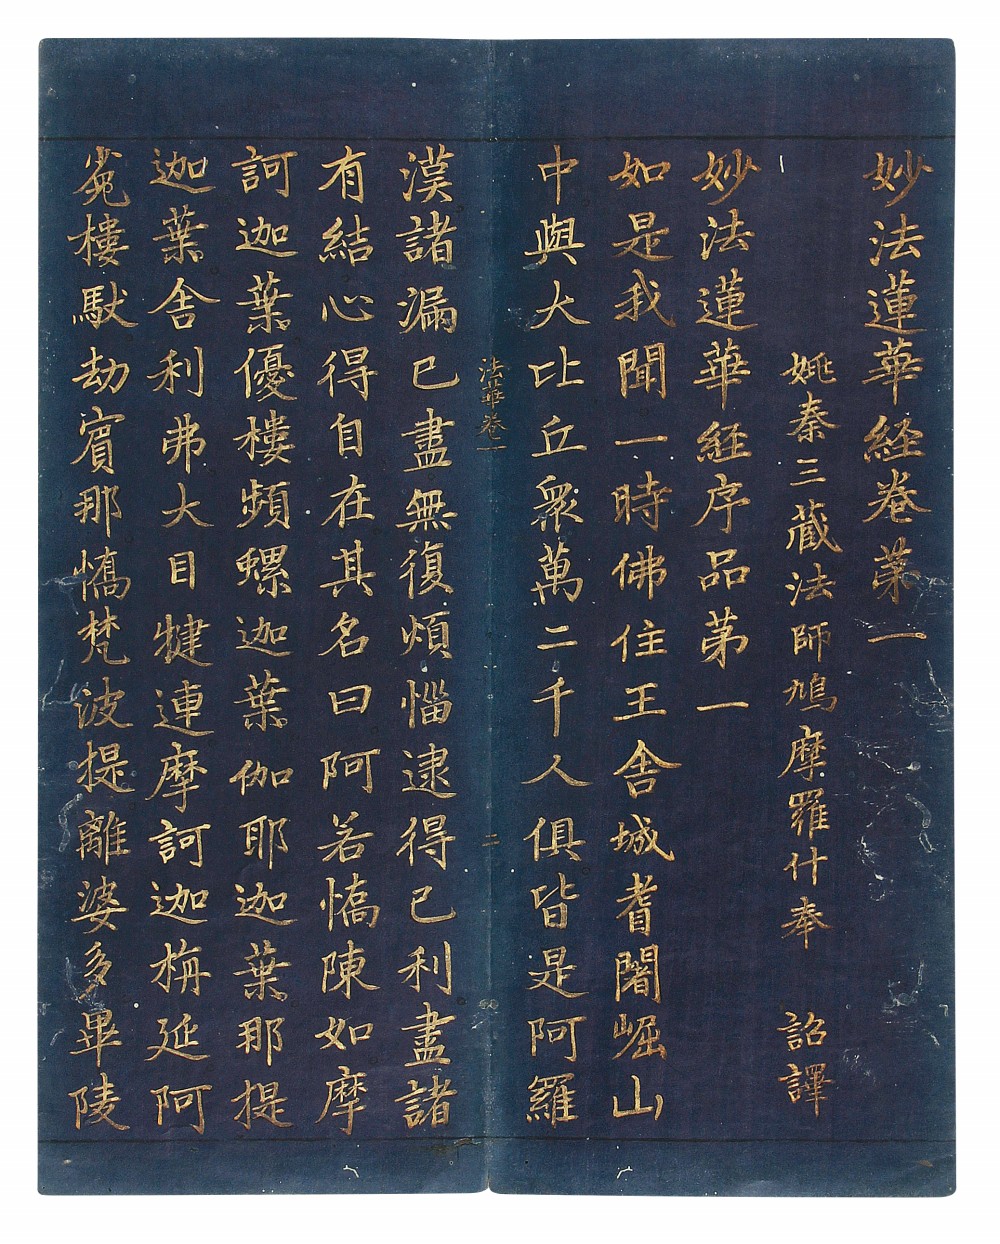 妙法蓮華経卷苐一
姚秦三蔵法師鳩摩羅什奉 詔譯
妙法蓮華経序品苐一
如是我聞一時佛住王舍城耆闍崛山
中與大比丘衆萬二千人俱皆是阿羅
法華卷一
二
漢諸漏已盡無復煩惱逮得已利盡諸
有結心得自在其名曰阿若憍陳如摩
訶迦葉優樓頻螺迦葉伽耶迦葉那提
迦葉舍利弗大目犍連摩訶迦栴延阿
㝹樓馱劫賓那憍梵波提離婆多畢陵